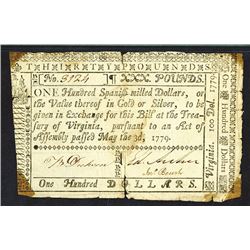 THIRTY POUNDS.
No. 3924 XXX. POUNDS.
ONE Hundred Spanish milled Dollars, or
the Value thereof in Gold or Silver, to be
given in Exchange for this Bill at the Trea-
sury of Virginia, pursuant to an Act of
Assembly passed May the 3d, 1779.
One Hundred DOLLARS.
Virginia. 100 Dol. 1779.
One Hundred